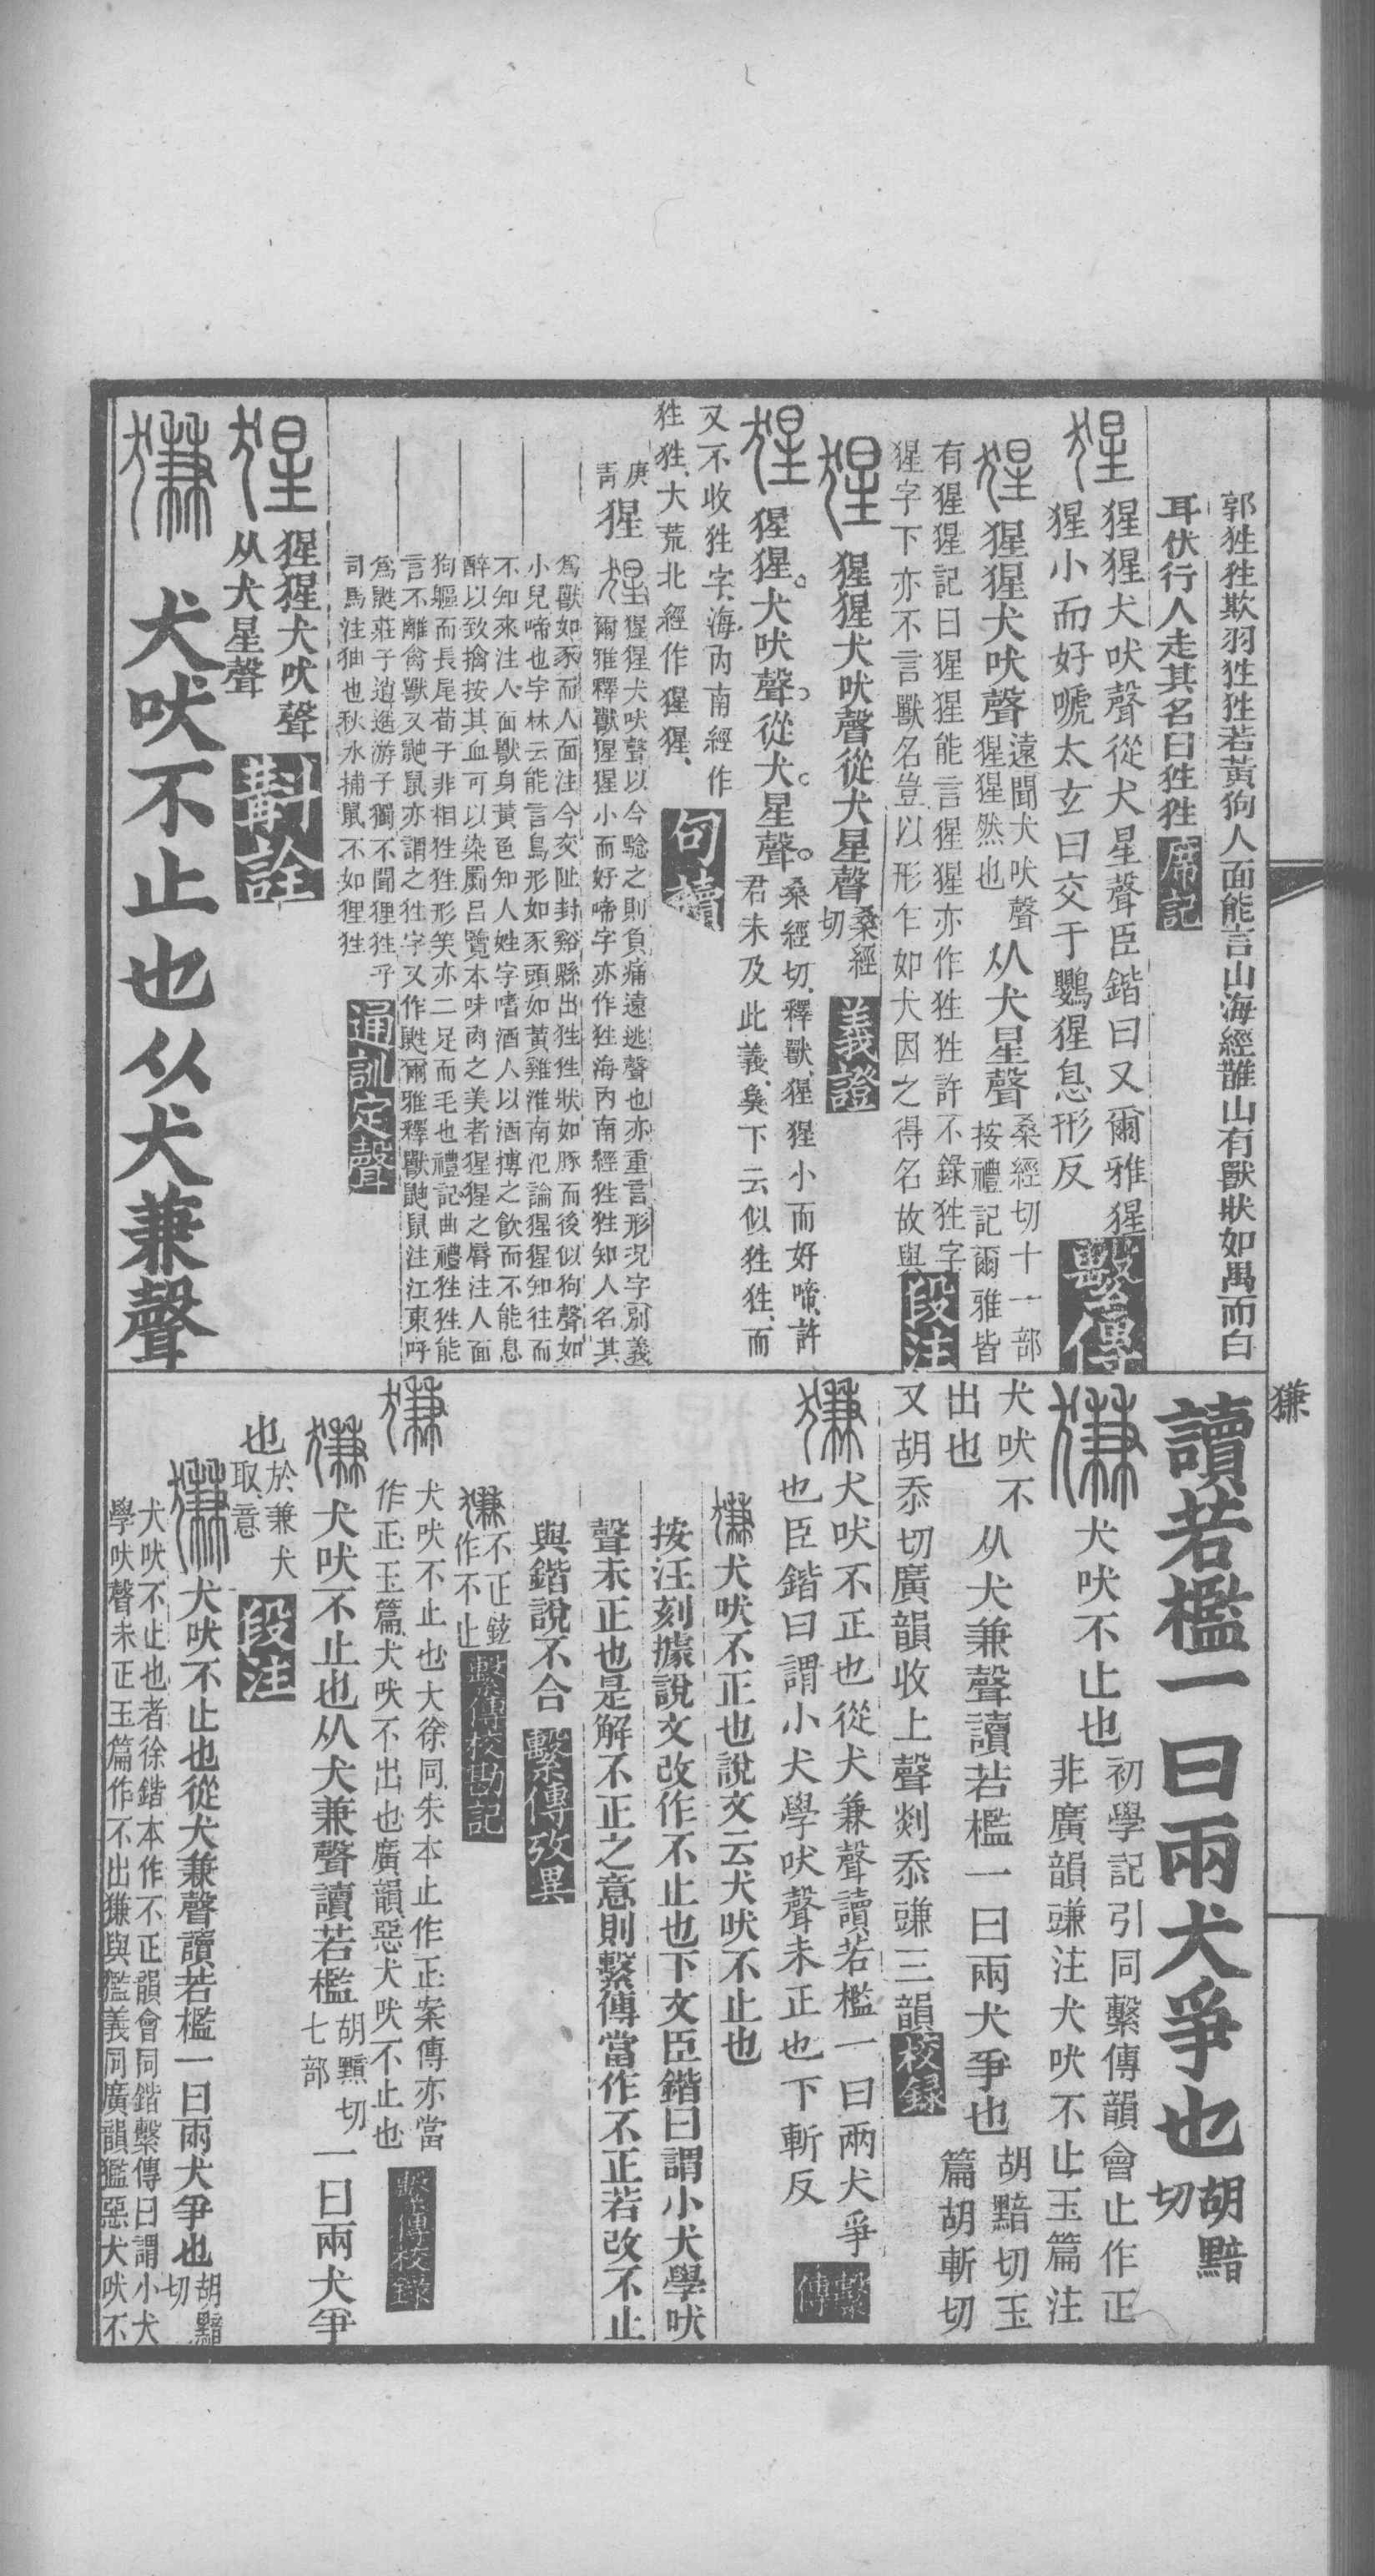 郭狌狌欺羽狌狌若黃狗人面能言山海經䧿山有獸狀如禺而白
耳伏行人走其名曰狌狌
席記
猩
猩猩犬吠聲從犬星聲臣鍇曰又爾雅猩
猩小而好嗁太玄曰交于鸚猩息形反
繫傳
猩
猩猩犬吠聲
遠聞犬吠聲
猩猩然也
从犬星聲
桑經切十一部
按禮記爾雅皆
有猩猩記曰猩猩能言猩猩亦作狌狌許不錄狌字
猩字下亦不言獸名豈以形乍如犬因之得名故與
段注
猩
猩猩犬吠聲從犬星聲
桑經
切
義證
猩
猩猩犬吠聲從犬星聲
桑經切釋獸猩猩小而好啼許
君未及此義㚖下云似狌狌而
又不收狌字海內南經作
狌狌大荒北經作猩猩
句讀
庚
青
猩
猩猩犬吠聲以今驗之則負痛遠逃聲也亦重言形況字別義
爾雅釋獸猩猩小而好啼字亦作狌海內南經狌狌知人名其
爲獸如豕而人面注今交阯封谿縣出狌狌狀如豚而後似狗聲如
小兒啼也字林云能言鳥形如豕頭如黃雞淮南氾論猩猩知往而
不知來注人面獸身黃色知人姓字嗜酒人以酒搏之飲而不能息
醉以致擒按其血可以染罽呂覽本味肉之美者猩猩之脣注人面
狗軀而長尾荀子非相狌狌形笑亦二足而毛也禮記曲禮狌狌能
言不離禽獸又鼬鼠亦謂之狌字又作鼪爾雅釋獸鼬鼠注江東呼
爲鼪莊子逍遙游子獨不聞狸狌乎
司馬注狖也秋水捕鼠不如狸狌
通訓定聲
猩
猩猩犬吠聲
从犬星聲
斠詮
㺌
犬吠不止也从犬兼聲
讀若檻一曰兩犬爭也
胡黯
切
㺌
犬吠不止也
初學記引同繫傳韻會止作正
非廣韻豏注犬吠不止玉篇注
犬吠不
出也
从犬兼聲讀若檻一曰兩犬爭也
胡黯切玉
篇胡斬切
又胡忝切廣韻收上聲剡忝豏三韻
校錄
㺌
犬吠不正也從犬兼聲讀若檻一曰兩犬爭
也臣鍇曰謂小犬學吠聲未正也下斬反
繫傳
㺌
犬吠不正也說文云犬吠不止也
按汪刻據說文改作不止也下文臣鍇曰謂小犬學吠
聲未正也是解不正之意則繫傳當作不正若改不止
與鍇說不合
繫傳攷異
㺌
不正鉉
作不止
繫傳校勘記
㺌
犬吠不止也大徐同朱本止作正案傳亦當
作正玉篇犬吠不出也廣韻惡犬吠不止也
繫傳校錄
㺌
犬吠不止也从犬兼聲讀若檻
胡黯切
七部
一曰兩犬爭
也
於兼犬
取意
段注
㺌
犬吠不止也從犬兼聲讀若檻一曰兩犬爭也
胡黯
切
犬吠不止也者徐鍇本作不正韻會同鍇繫傳曰謂小犬
學吠聲未正玉篇作不出㺌與㺝義同廣韻㺝惡犬吠不
㺌